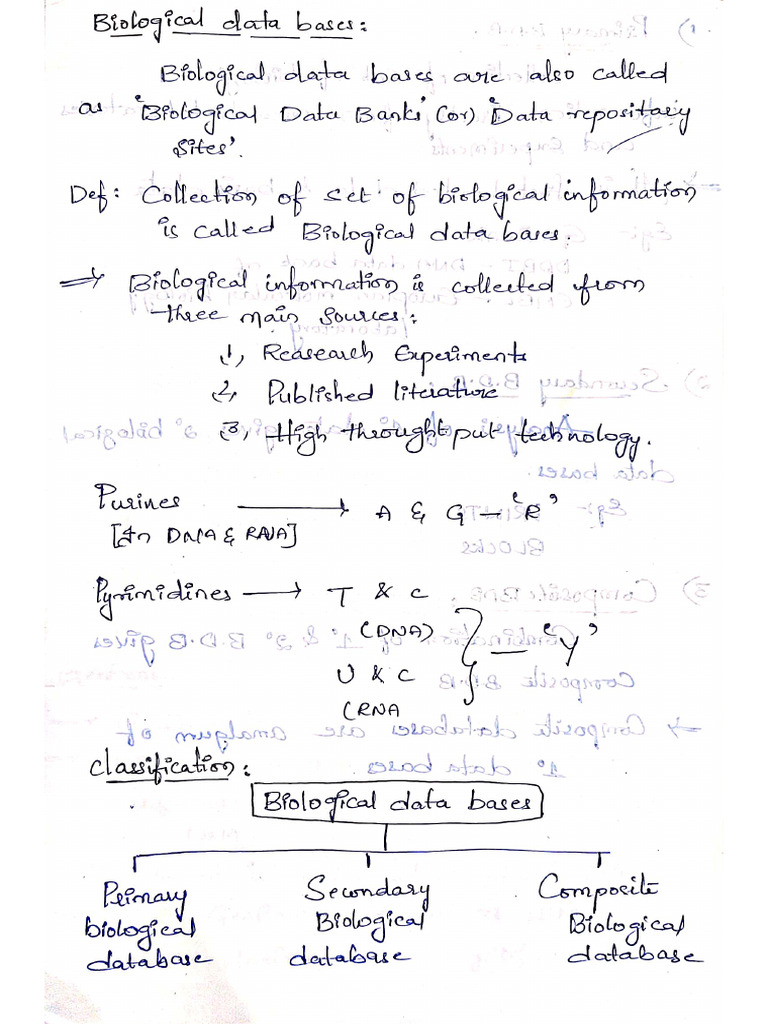 Biological data bases:
Biological data bases are also called
as 'Biological Data Banks' (or) 'Data repositary
Sites'.
Def: Collection of set of biological information
is called Biological data bases.
→ Biological information is collected from
three main sources:
1, Reasearch Experiments
2, Published literature
3, High throught put technology.
Purines → A & G – 'R'
[In DNA & RNA]
Pyrimidines → T & C
(DNA)
– 'Y'
U & C
(RNA
Classification:
Biological data bases
Primary Secondary Composite
biological Biological Biological
database database database